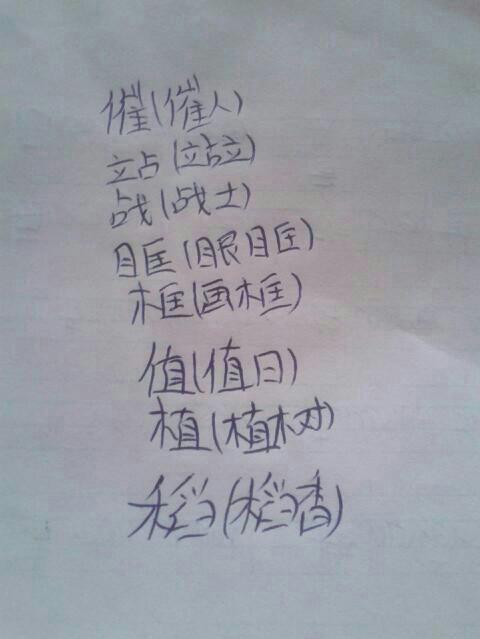 催(催人)
站(站立)
战(战士)
眶(眼眶)
框(画框)
值(值日)
植(植树)
稻(稻香)